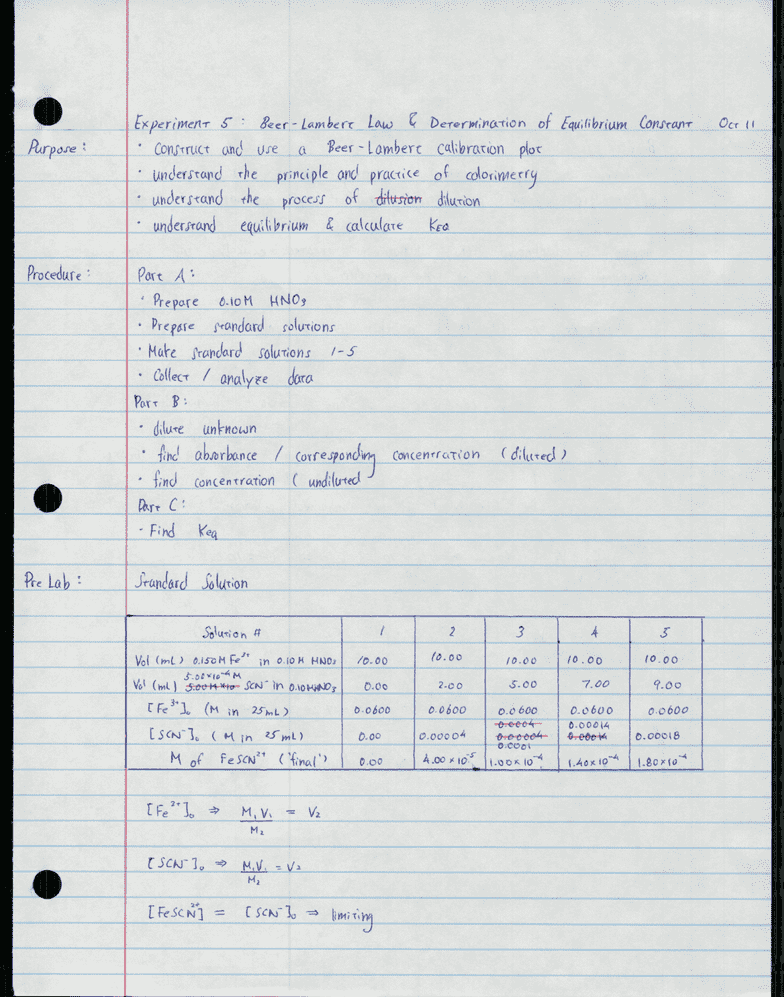 Experiment 5: Beer-Lambert Law & Determination of Equilibrium Constant Oct 11
Purpose: · Construct and use a Beer-Lambert calibration plot
· understand the principle and practice of colorimetry
· understand the process of dilusion dilution
· understand equilibrium & calculate KEQ
Procedure: Part A:
· Prepare 0.10M HNO₃
· Prepare standard solutions
· Make standard solutions 1-5
· Collect / analyze data
Part B:
· dilute unknown
· find absorbance / corresponding concentration (diluted)
· find concentration (undiluted
Part C:
· Find Keq
Pre Lab: Standard Solution
Solution # 1 2 3 4 5
Vol (mL) 0.150M Fe³⁺ in 0.10M HNO₃ 10.00 10.00 10.00 10.00 10.00
5.00×10⁻⁴ M
Vol (mL) SCN⁻ in 0.10M HNO₃ 0.00 2.00 5.00 7.00 9.00
[Fe³⁺]₀ (M in 25mL) 0.0600 0.0600 0.0600 0.0600 0.0600
0.0004 0.00014
[SCN⁻]₀ (M in 25mL) 0.00 0.00004 0.00004 0.00014 0.00018
0.0001
M of FeSCN²⁺ ('final') 0.00 4.00×10⁻⁵ 1.00×10⁻⁴ 1.40×10⁻⁴ 1.80×10⁻⁴
[Fe³⁺]₀ ⇒ M₁V₁ = V₂
M₂
[SCN⁻]₀ ⇒ M₁V₁ = V₂
M₂
[FeSCN²⁺] = [SCN⁻]₀ ⇒ limiting